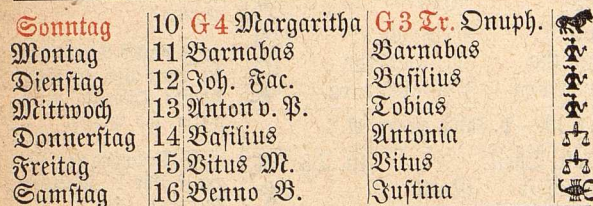 Sonntag 10 G 4 Margaritha G 3 Tr. Onuph.
Montag 11 Barnabas Barnabas
Dienſtag 12 Joh. Fac. Baſilius
Mittwoch 13 Anton v. P. Tobias
Donnerſtag 14 Baſilius Antonia
Freitag 15 Vitus M. Vitus
Samſtag 16 Benno B. Juſtina